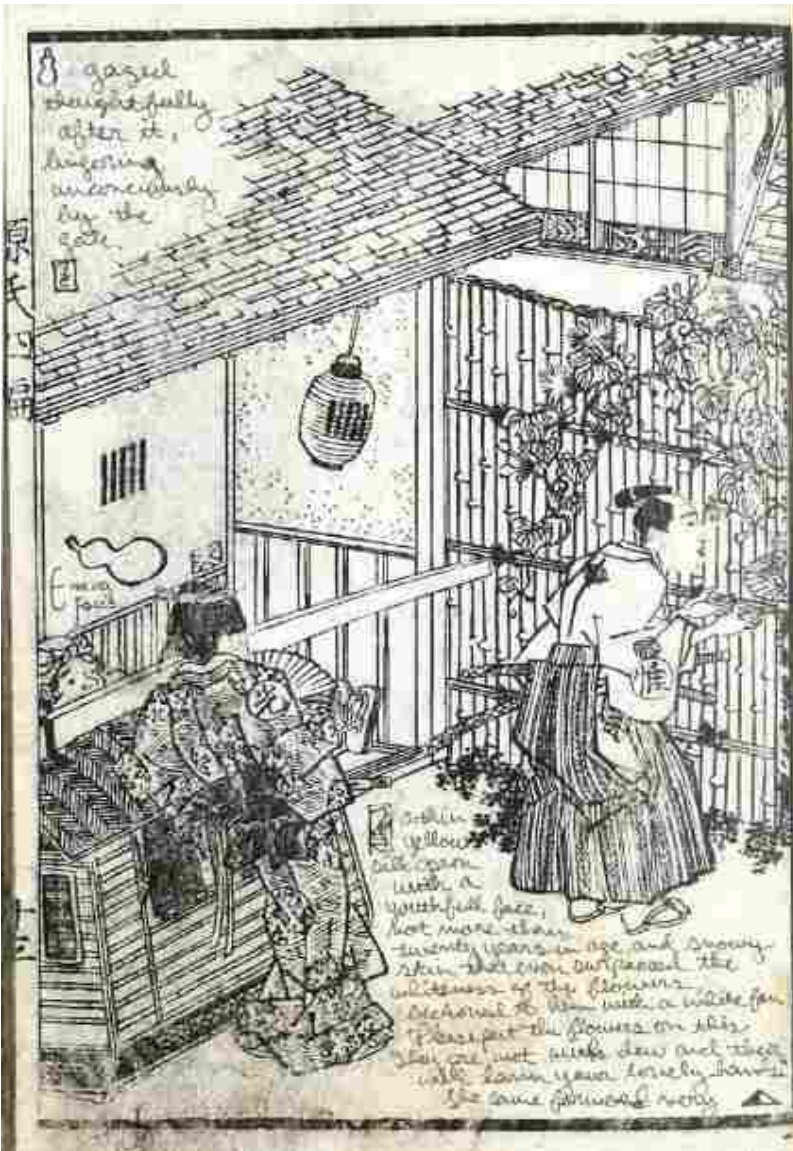 gazed
thoughtfully
after it,
lingering
unconciously
by the
gate
源氏四編
E
face
within
yellow
silk
with a
youthfull face,
not more than
twenty years in age and snowy
skin that even surpassed the
whiteness of the flowers
beckoned to him with a white fan
Please put the flowers on this.
They are wet with dew and they
will harm your lovely hands
She came forward